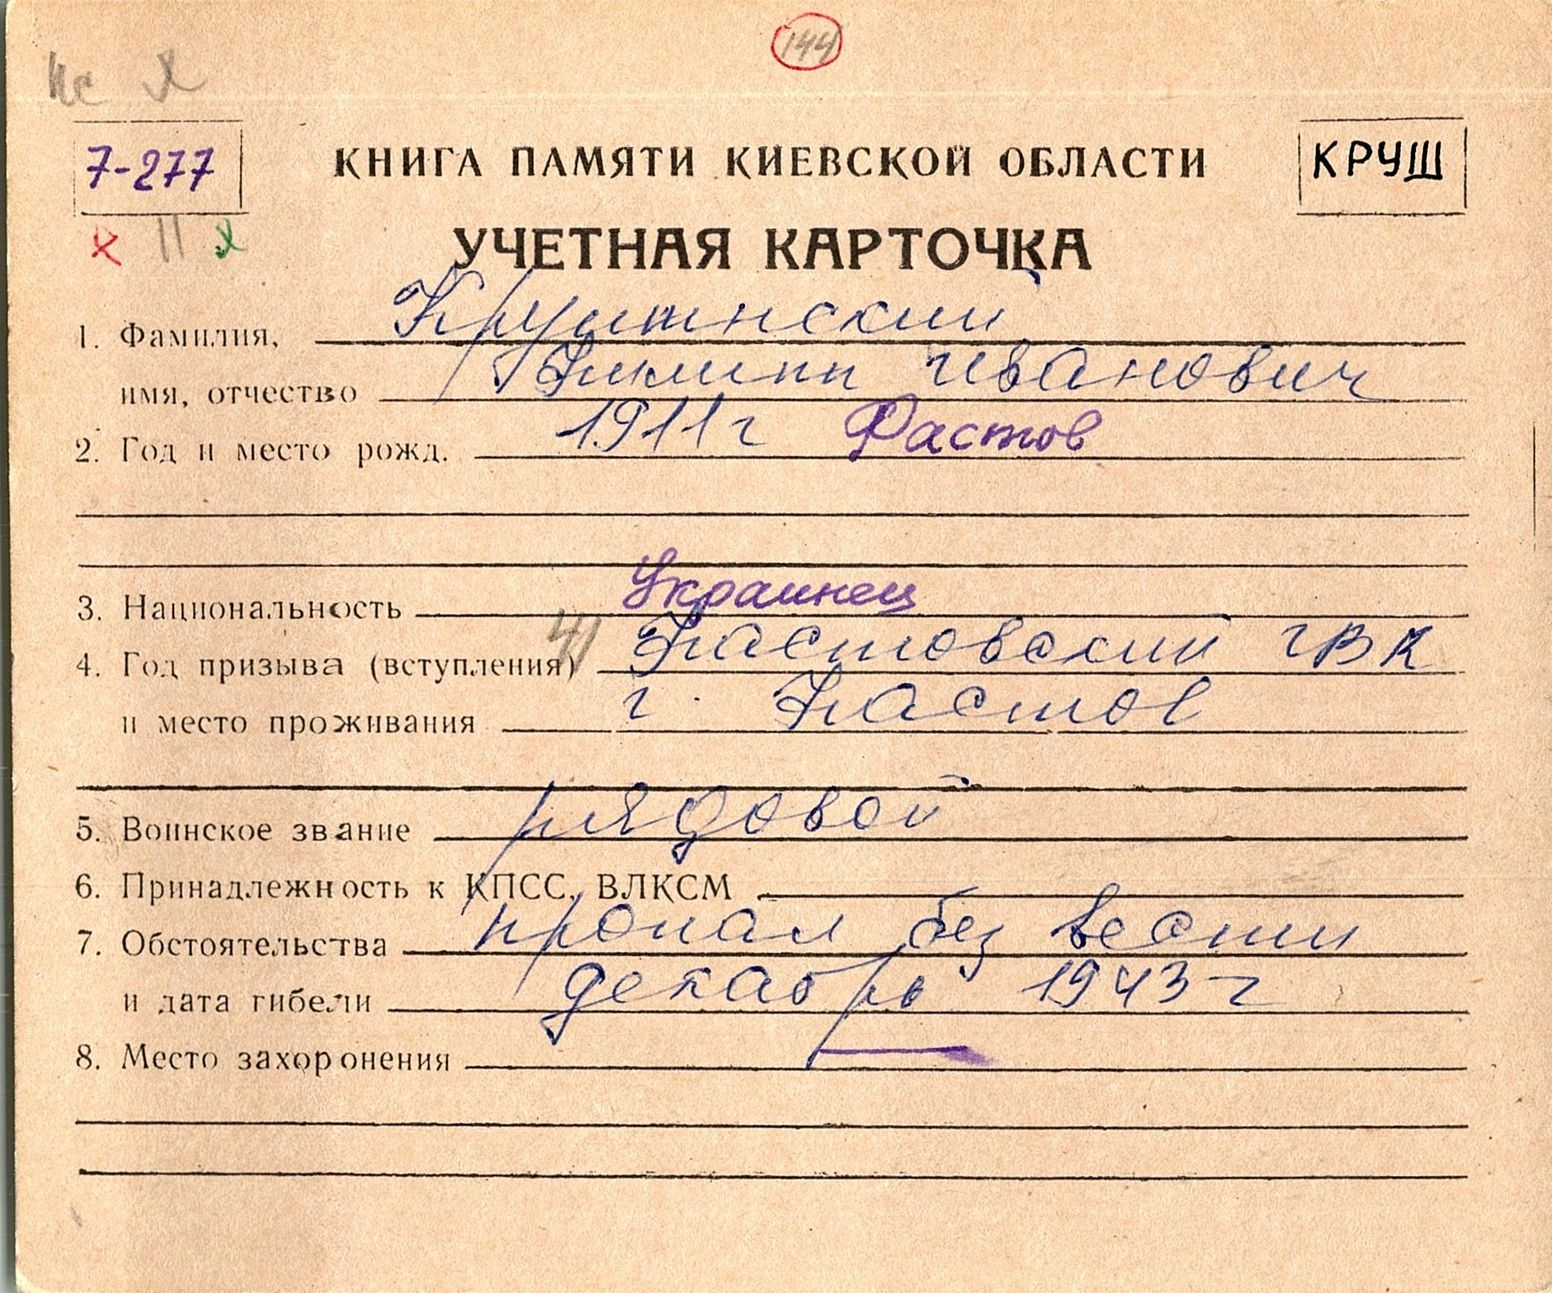 144
7-277
КНИГА ПАМЯТИ КИЕВСКОЙ ОБЛАСТИ
КРУШ
УЧЕТНАЯ КАРТОЧКА
1. Фамилия, Крушинский
имя, отчество Филипп Иванович
2. Год и место рожд. 1911 г Фастов
3. Национальность Украинец
4. Год призыва (вступления) 41 Фастовский ГВК
и место проживания г. Фастов
5. Воинское звание рядовой
6. Принадлежность к КПСС, ВЛКСМ
7. Обстоятельства пропал без вести
и дата гибели декабрь 1943 г
8. Место захоронения —